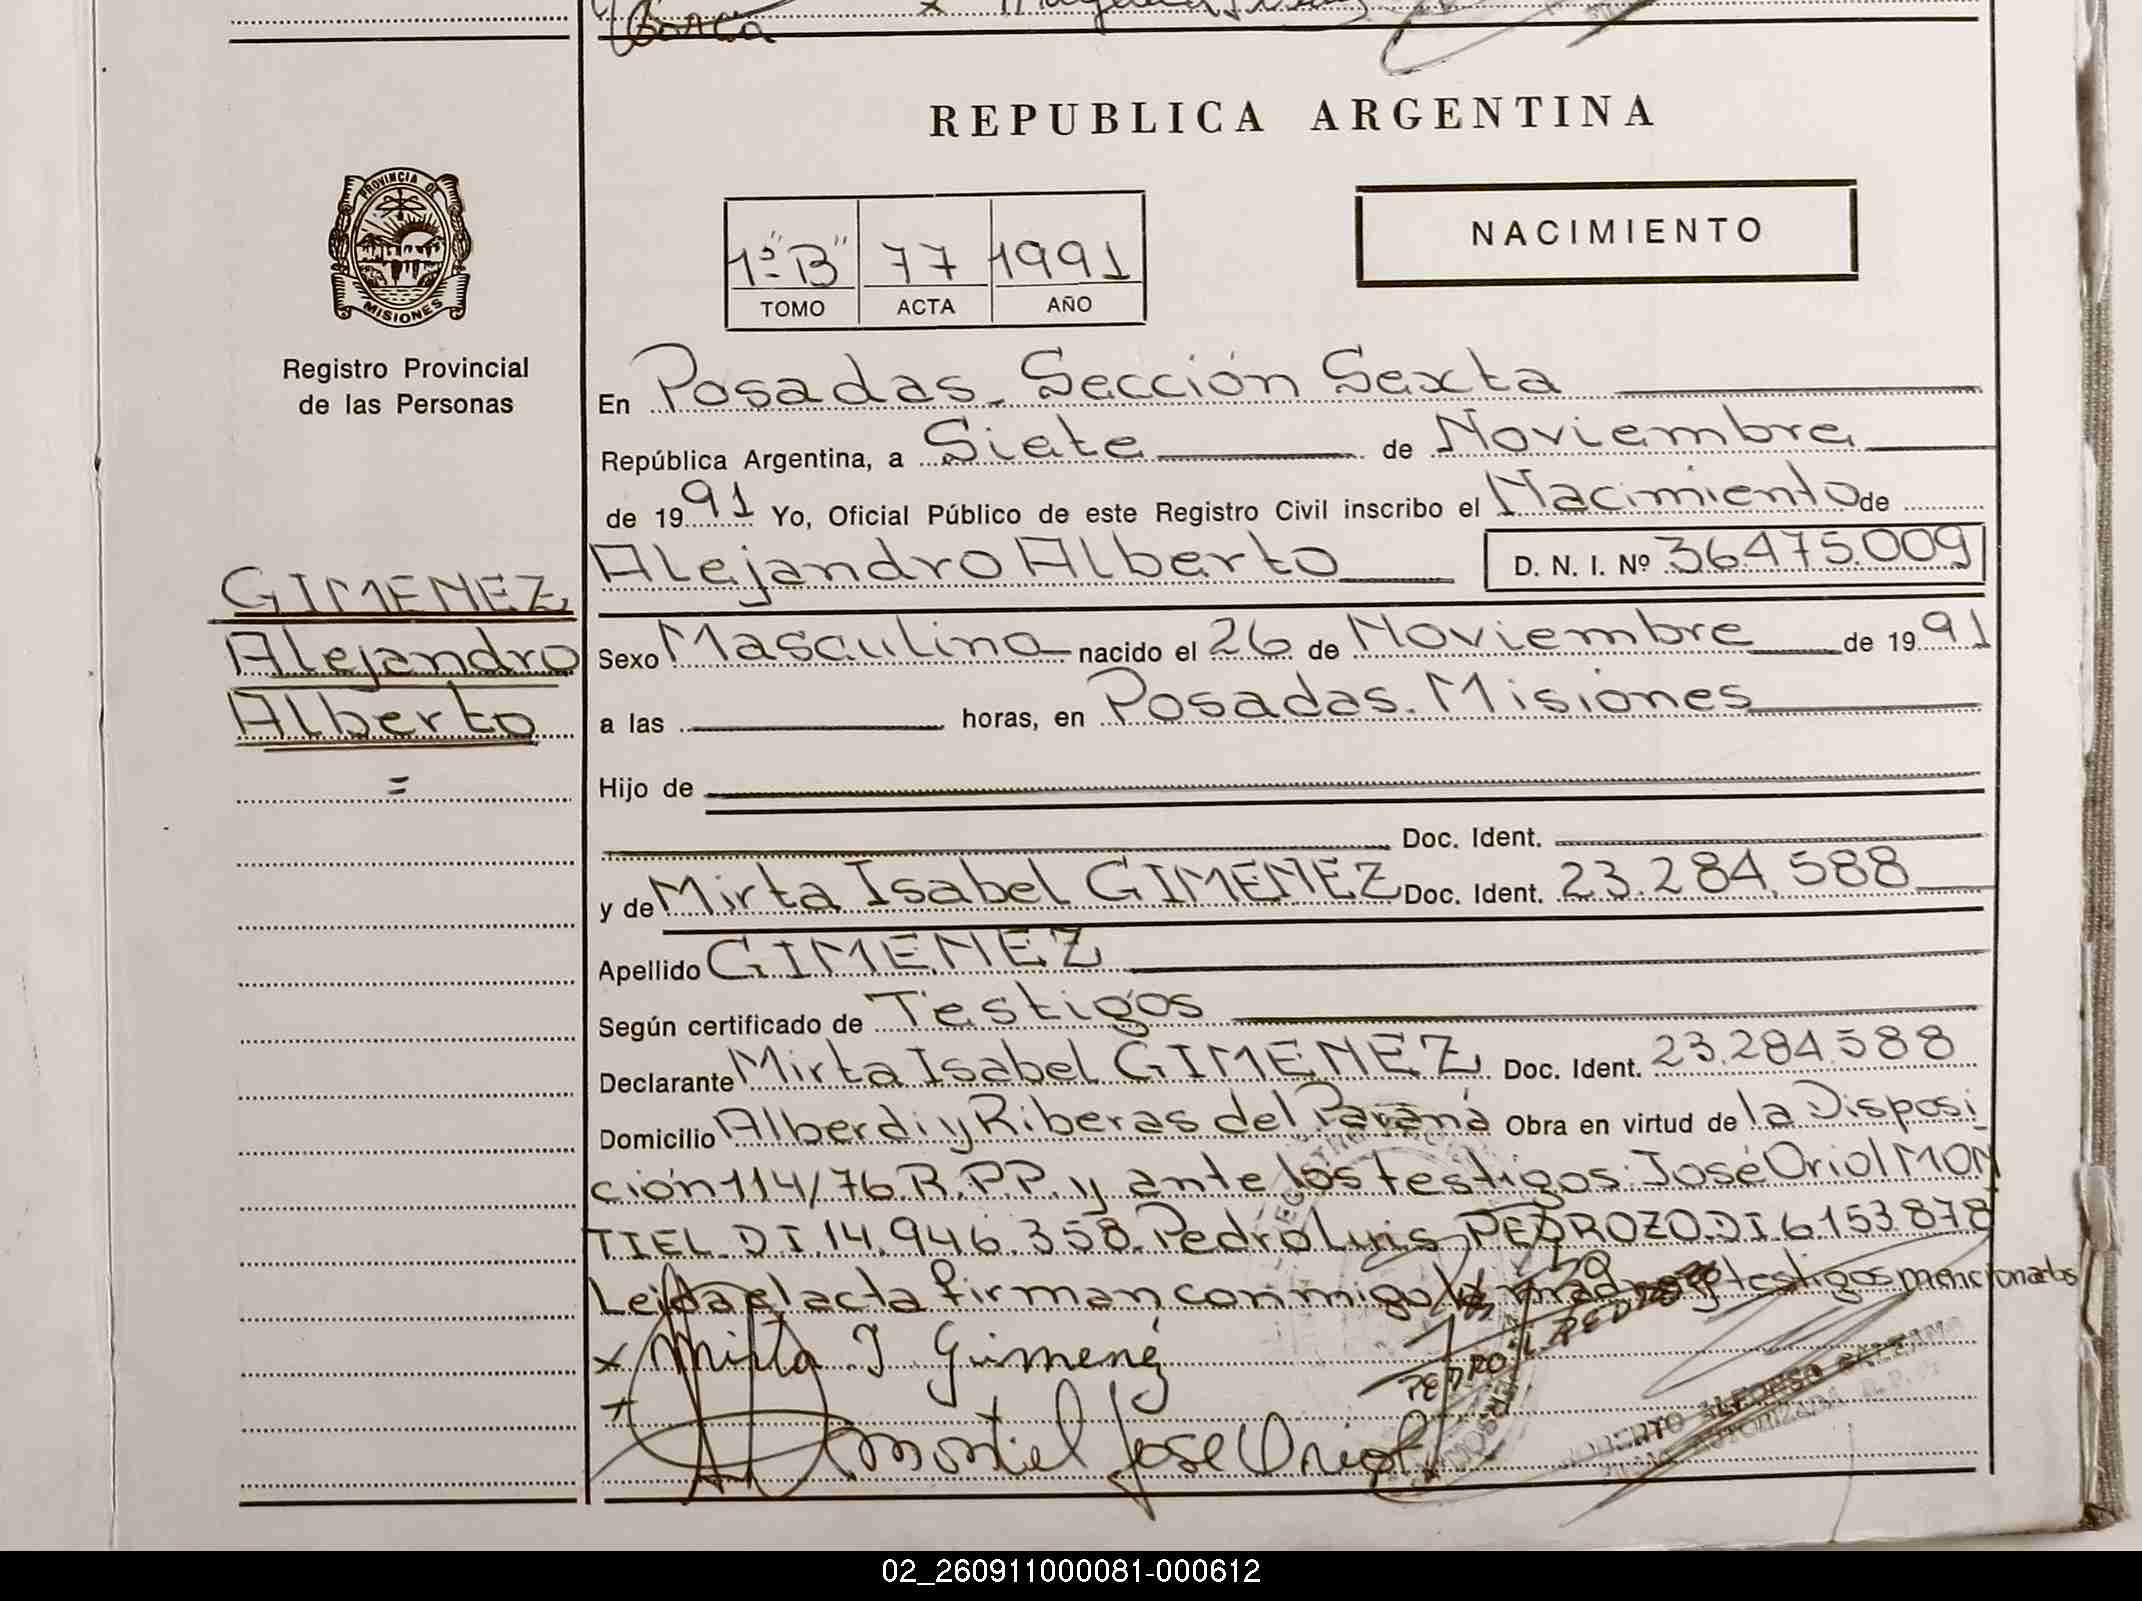 REPUBLICA ARGENTINA
PROVINCIA DE
MISIONES
Registro Provincial
de las Personas
1º "B" 77 1991
TOMO ACTA AÑO
NACIMIENTO
En Posadas. Sección Sexta
República Argentina, a Siete de Noviembre
de 1991 Yo, Oficial Público de este Registro Civil inscribo el Nacimiento de
Alejandro Alberto D. N. I. Nº 36475.009
GIMENEZ
Alejandro
Alberto
=
Sexo Masculino nacido el 26 de Noviembre de 1991
a las horas, en Posadas. Misiones
Hijo de
Doc. Ident.
y de Mirta Isabel GIMENEZ Doc. Ident. 23.284.588
Apellido GIMENEZ
Según certificado de Testigos
Declarante Mirta Isabel GIMENEZ Doc. Ident. 23.284.588
Domicilio Alberdi y Riberas del Paraná Obra en virtud de la Disposi
ción 114/76 R.P.P. y ante los testigos: José Oriol MON
TIEL DI 14.946.358. Pedro Luis PEDROZO. DI 6153.878
Leida el acta firman conmigo la madre y testigos mencionados
x Mirta I Gimenez
x Montiel Jose Oriol
PEDRO L. PEDROZO
02_260911000081-000612